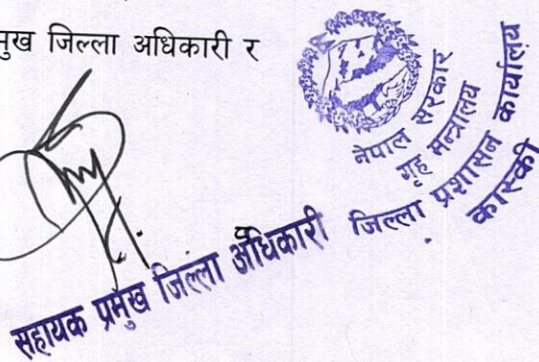 मुख जिल्ला अधिकारी र
नेपाल सरकार
गृह मन्त्रालय
जिल्ला प्रशासन कार्यालय
कास्की
सहायक प्रमुख जिल्ला अधिकारी